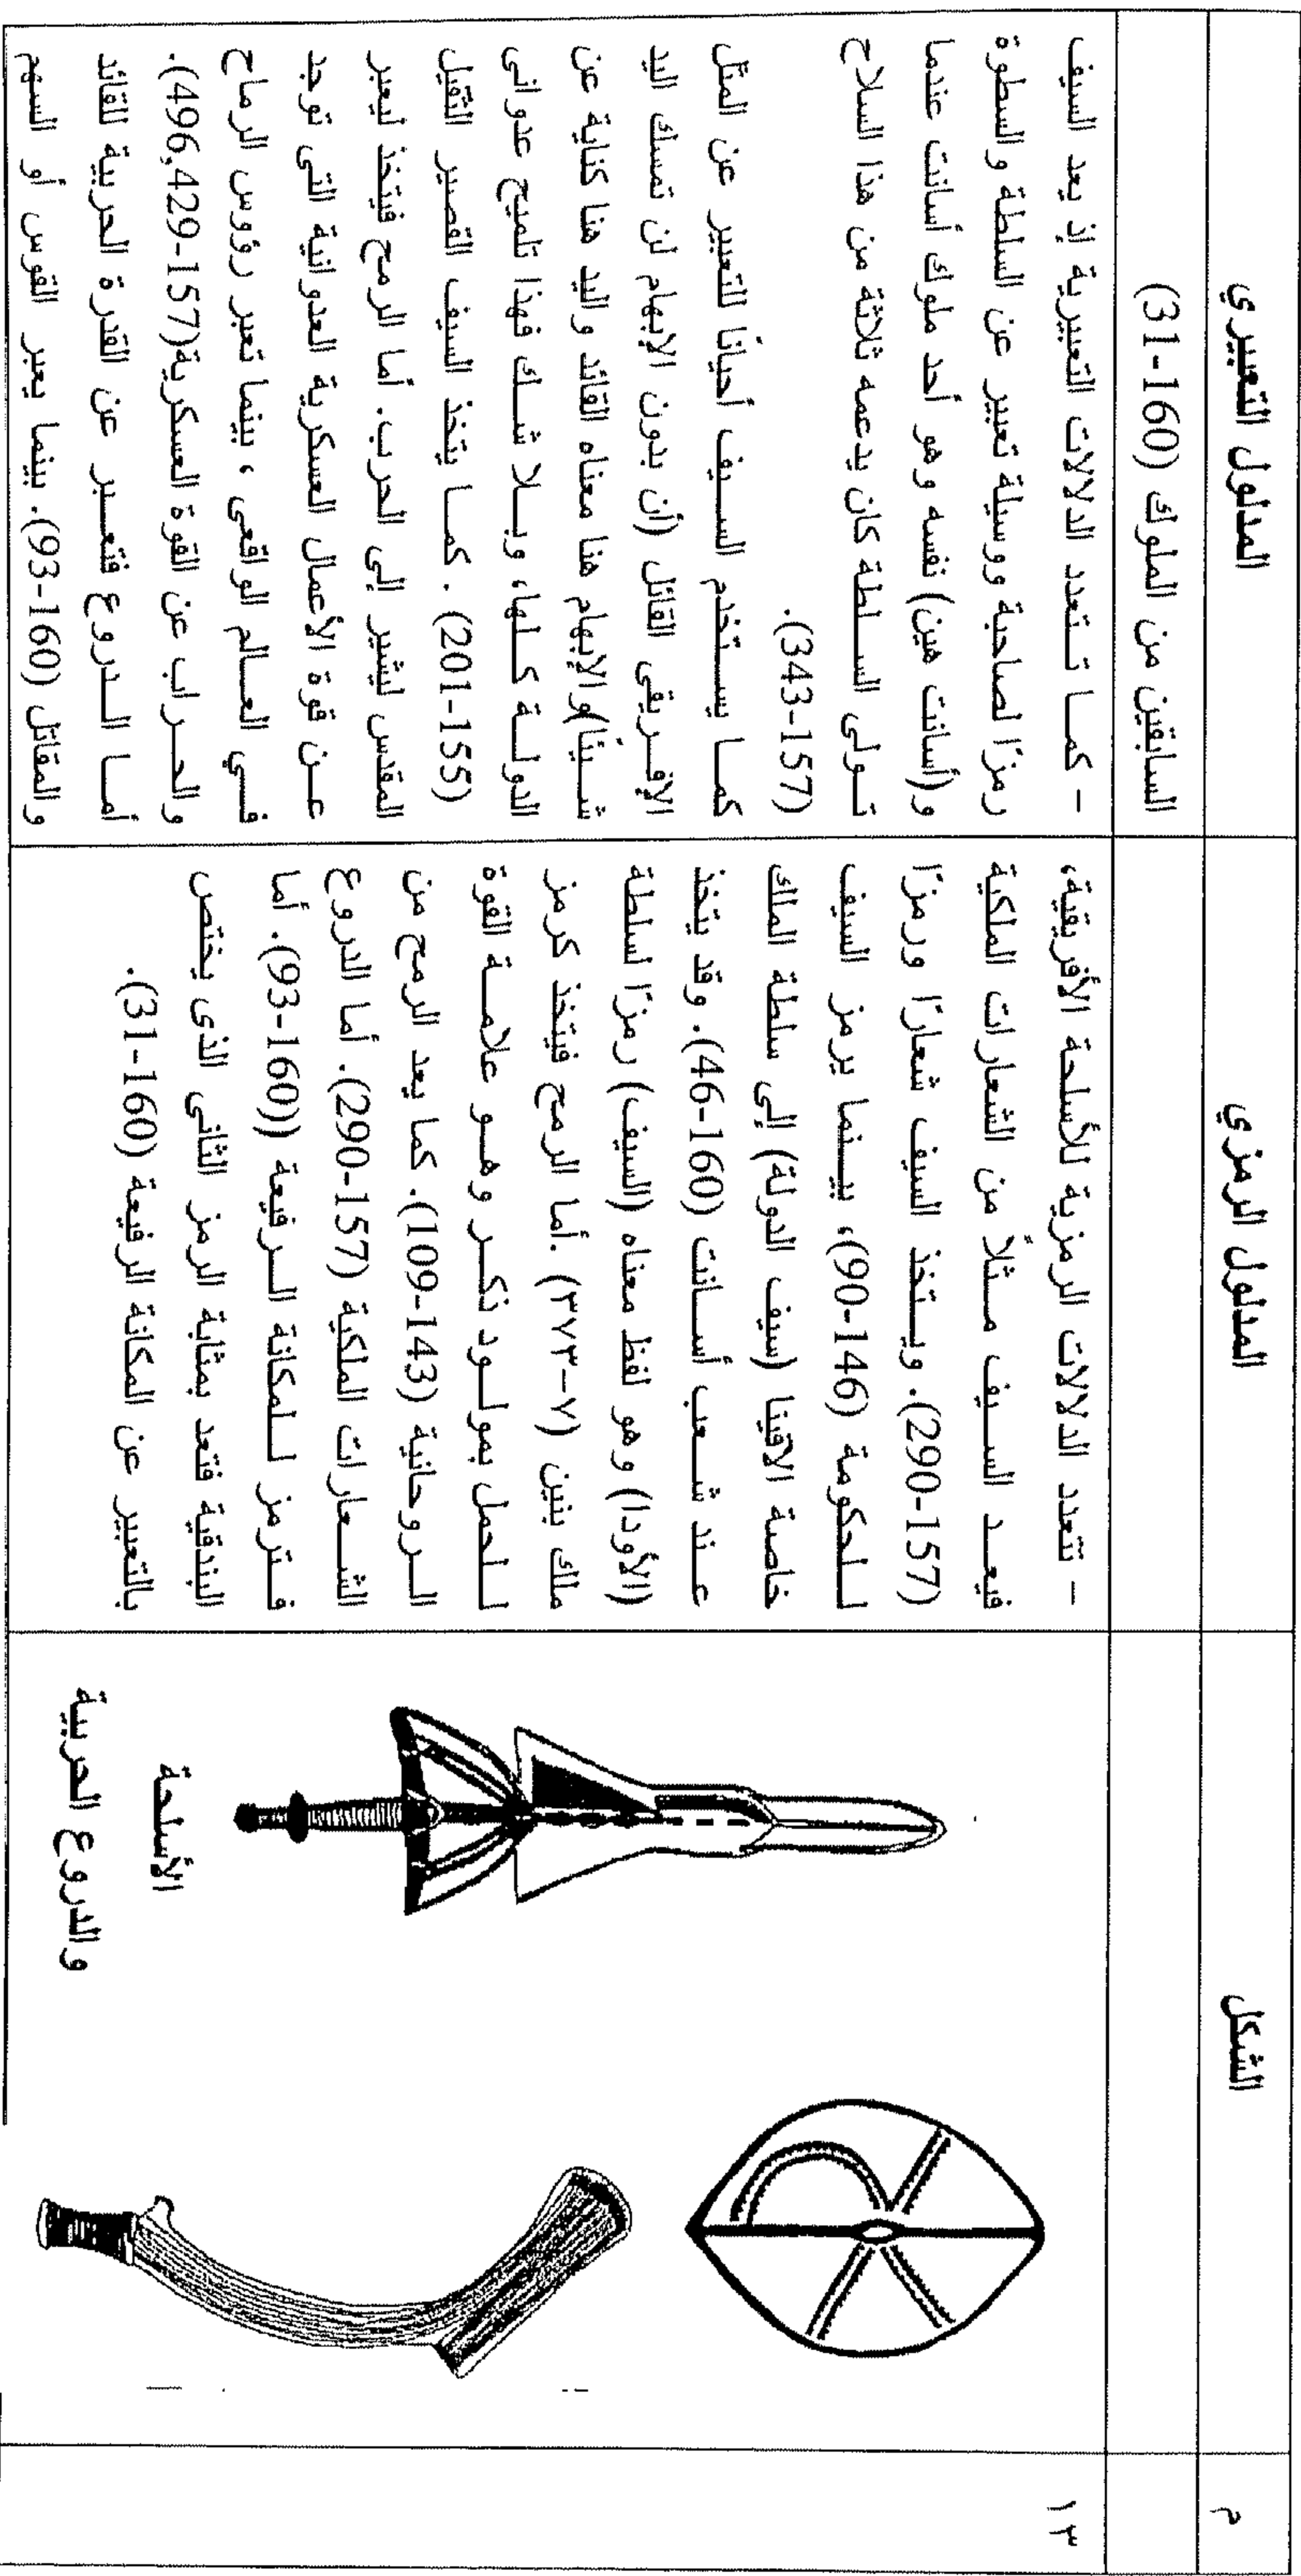 م
الشكل
المدلول الرمزي
المدلول التعبيري
السابقين من الملوك (160-31)
١٣
الأسلحة
والدروع الحربية
- تتعدد الدلالات الرمزية للأسلحة الأفريقية،
فيعد السيف مثلاً من الشعارات الملكية
(157-290). ويتخذ السيف شعارًا ورمزًا
للحكومة (146-90)، بينما يرمز السيف
خاصة الافينا (سيف الدولة) إلى سلطة الملك
عند شعب أسانت (160-46). وقد يتخذ
(الأودا) وهو لفظ معناه (السيف) رمزًا لسلطة
ملك بنين (٧-٣٧٣). أما الرمح فيتخذ كرمز
للحمل بمولود ذكر وهو علامة القوة
الروحانية (143-109). كما يعد الرمح من
الشعارات الملكية (157-290). أما الدروع
فترمز للمكانة الرفيعة ((160-93). أما
البندقية فتعد بمثابة الرمز الثانى الذى يختص
بالتعبير عن المكانة الرفيعة (160-31).
- كما تتعدد الدلالات التعبيرية إذ يعد السيف
رمزًا لصاحبة ووسيلة تعبير عن السلطة والسطوة
و(أسانت هين) نفسه وهو أحد ملوك أسانت عندما
تولى السلطة كان يدعمه ثلاثة من هذا السلاح
(157-343).
كما يستخدم السيف أحيانًا للتعبير عن المثل
الإفريقى القائل (أن بدون الإبهام لن تمسك اليد
شيئًا)والإبهام هنا معناه القائد واليد هنا كناية عن
الدولة كلها، وبلا شك فهذا تلميح عدوانى
(155-201) . كما يتخذ السيف القصير الثقيل
المقدس ليشير إلى الحرب. أما الرمح فيتخذ ليعبر
عن قوة الأعمال العسكرية العدوانية التى توجد
فى العالم الواقعى ، بينما تعبر رؤوس الرماح
والحراب عن القوة العسكرية(157-496,429).
أما الدروع فتعبر عن القدرة الحربية للقائد
والمقاتل (160-93). بينما يعبر القوس أو السهم